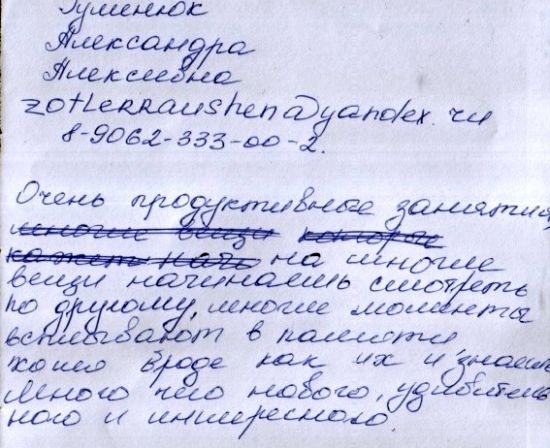 Гуменюк
Александра
Алексеевна
zotterraushen@yandex.ru
8-9062-333-00-2.
Очень продуктивные занятия,
многие вещи которые
на многие
вещи начинаешь смотреть
по другому, многие моменты
всплывают в памяти
хотя вроде как их и знаешь
Много чего нового, удивитель
ного и интересного.